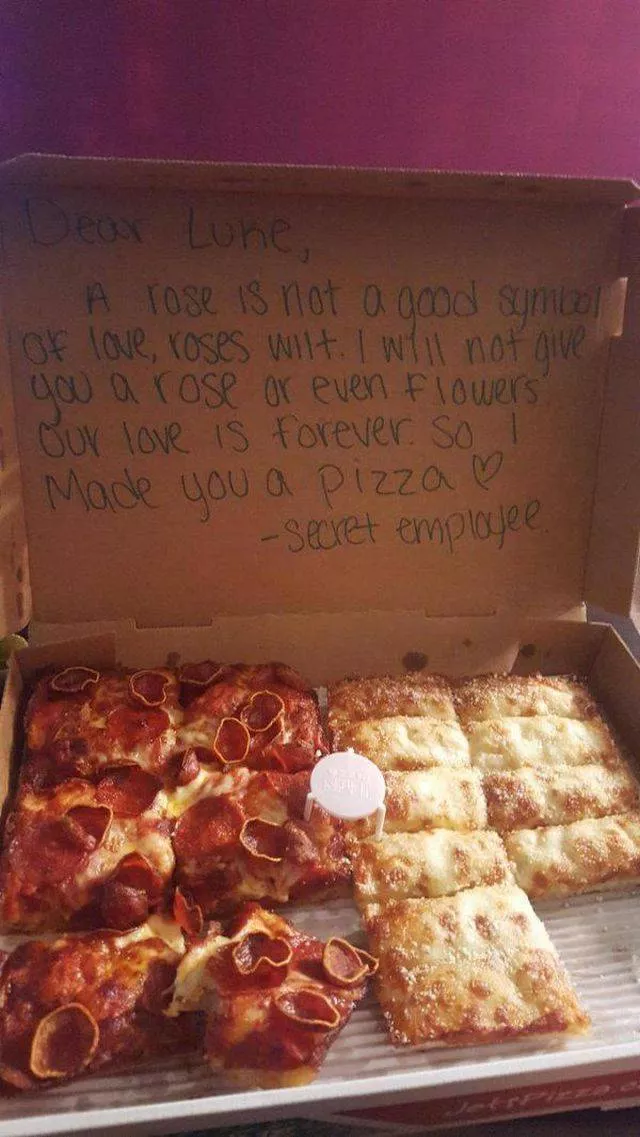 Dear Luke,
A rose is not a good symbol
of love, roses wilt. I will not give
you a rose or even flowers
our love is forever. So I
Made you a pizza ♡
-secret employee.
Jet's Pizza